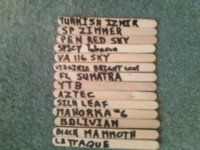 TURKISH IZMIR
SP ZIMMER
PEN RED SKY
SPICY Tobacco
VA 116 SKY
VIRGINIA BRIGHT Leaf
FL SUMATRA
YTB
AZTEC
SILK LEAF
MAHORKA #6
BOLIVIAN
BLACK MAMMOTH
LATAQUE